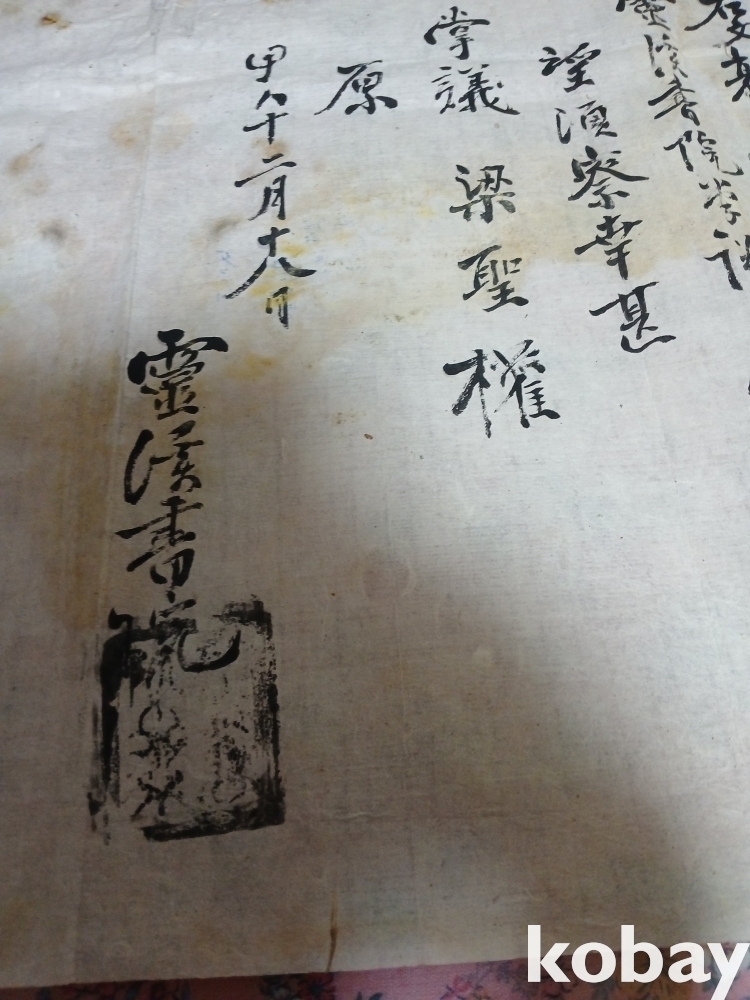 靈溪書院掌議
望須察幸甚
掌議 梁聖權
原
甲午二月十八日
靈溪書院
kobay